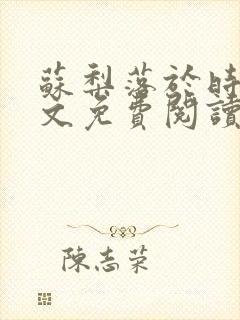 蘇梨落於時
文免費閱讀
陳志荣